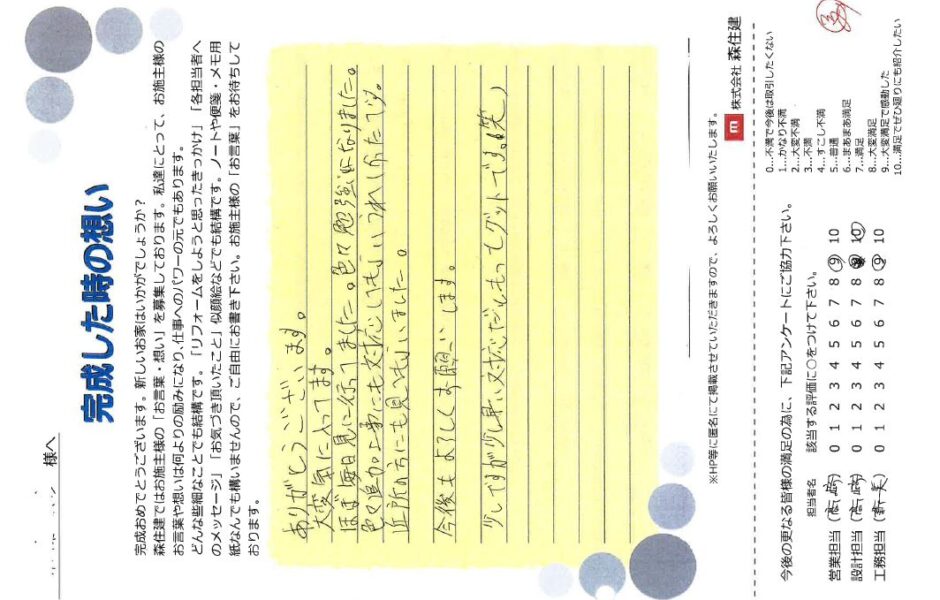 様へ
完成した時の想い
完成おめでとうございます。新しいお家はいかがでしょうか？
森住建ではお施主様の「お言葉・想い」を募集しております。私達にとって、お施主様の
お言葉や想いは何よりの励みになり、仕事へのパワーの元でもあります。
どんな些細なことでも結構です。「リフォームをしようと思ったきっかけ」「各担当者へ
のメッセージ」「お気づき頂いたこと」似顔絵などでも結構です。ノートや便箋・メモ用
紙なんでも構いませんので、ご自由にお書き下さい。お施主様の「お言葉」をお待ちして
おります。
ありがとうございます。
大変気に入ってます。
ほぼ毎日見に行ってました。色々勉強になりました。
色々追加工事にも対応してもらいうれしかったです。
近所の方にも見てもらいました。
今後もよろしくお願いします。
少しですが少し早い対応だともっとグットです。(笑)
※HP等に匿名にて掲載させていただきますので、よろしくお願いいたします。
m 株式会社 森住建
今後の更なる皆様の満足の為に、下記アンケートにご協力下さい。
担当者名 該当する評価に○をつけて下さい。
営業担当 ( ) 0 1 2 3 4 5 6 7 8 9 10
設計担当 ( ) 0 1 2 3 4 5 6 7 8 9 10
工務担当 ( ) 0 1 2 3 4 5 6 7 8 9 10
0…不満で今後は取引したくない
1…かなり不満
2…大変不満
3…不満
4…すこし不満
5…普通
6…まあまあ満足
7…満足
8…大変満足
9…大変満足で感動した
10…満足でぜひ廻りにも紹介したい